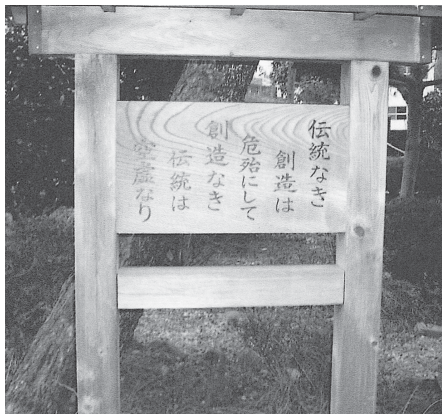 伝統なき
創造は
危殆にして
創造なき
伝統は
空虚なり